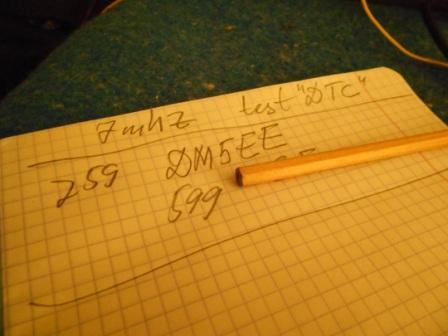 7mhz test "DTC"
7 59 DM5EE
599